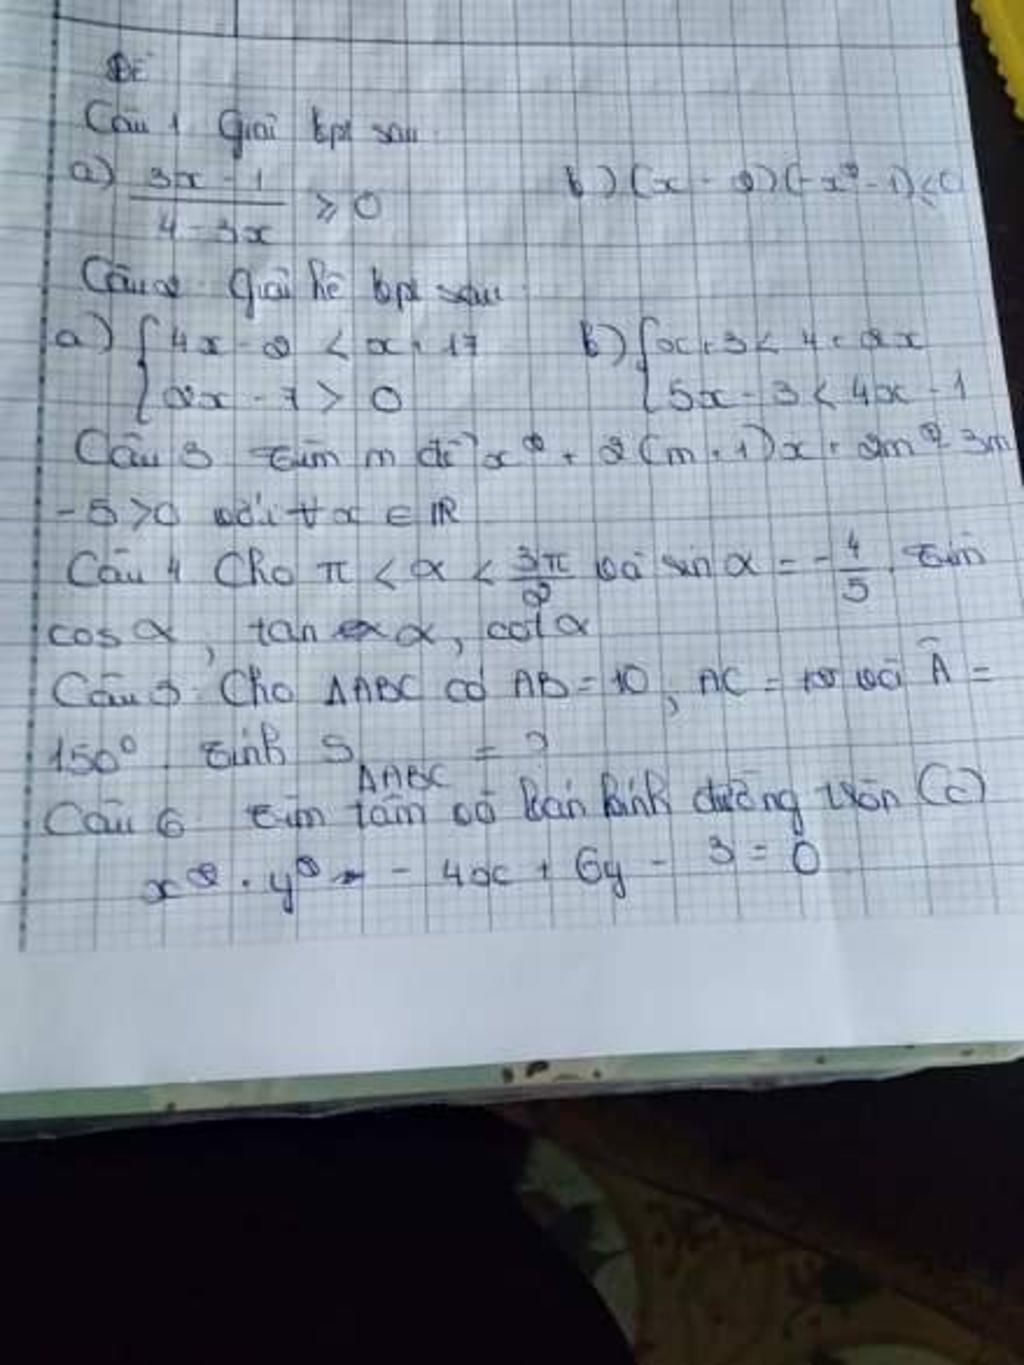 Đề
Câu 1 Giải bpt sau
a) (3x - 1)/(4 - 3x) ≥ 0 b) (x - 2)(-x² - 1) < 0
Câu 2 Giải hệ bpt sau
a) { 4x - 2 < x + 17 b) { x + 3 < 4 + 2x
2x - 7 > 0 5x - 3 < 4x - 1
Câu 3 tìm m để x² + 2(m + 1)x + 2m² 3m
- 5 > 0 với ∀x ∈ ℝ
Câu 4 Cho π < α < 3π/2 và sin α = -4/5. Tìm
cos α, tan α, cot α
Câu 5 Cho ΔABC có AB = 10, AC = và Â =
150° tính S ΔABC = ?
Câu 6 tìm tâm và bán kính đường tròn (C)
x² + y² - 4x + 6y - 3 = 0